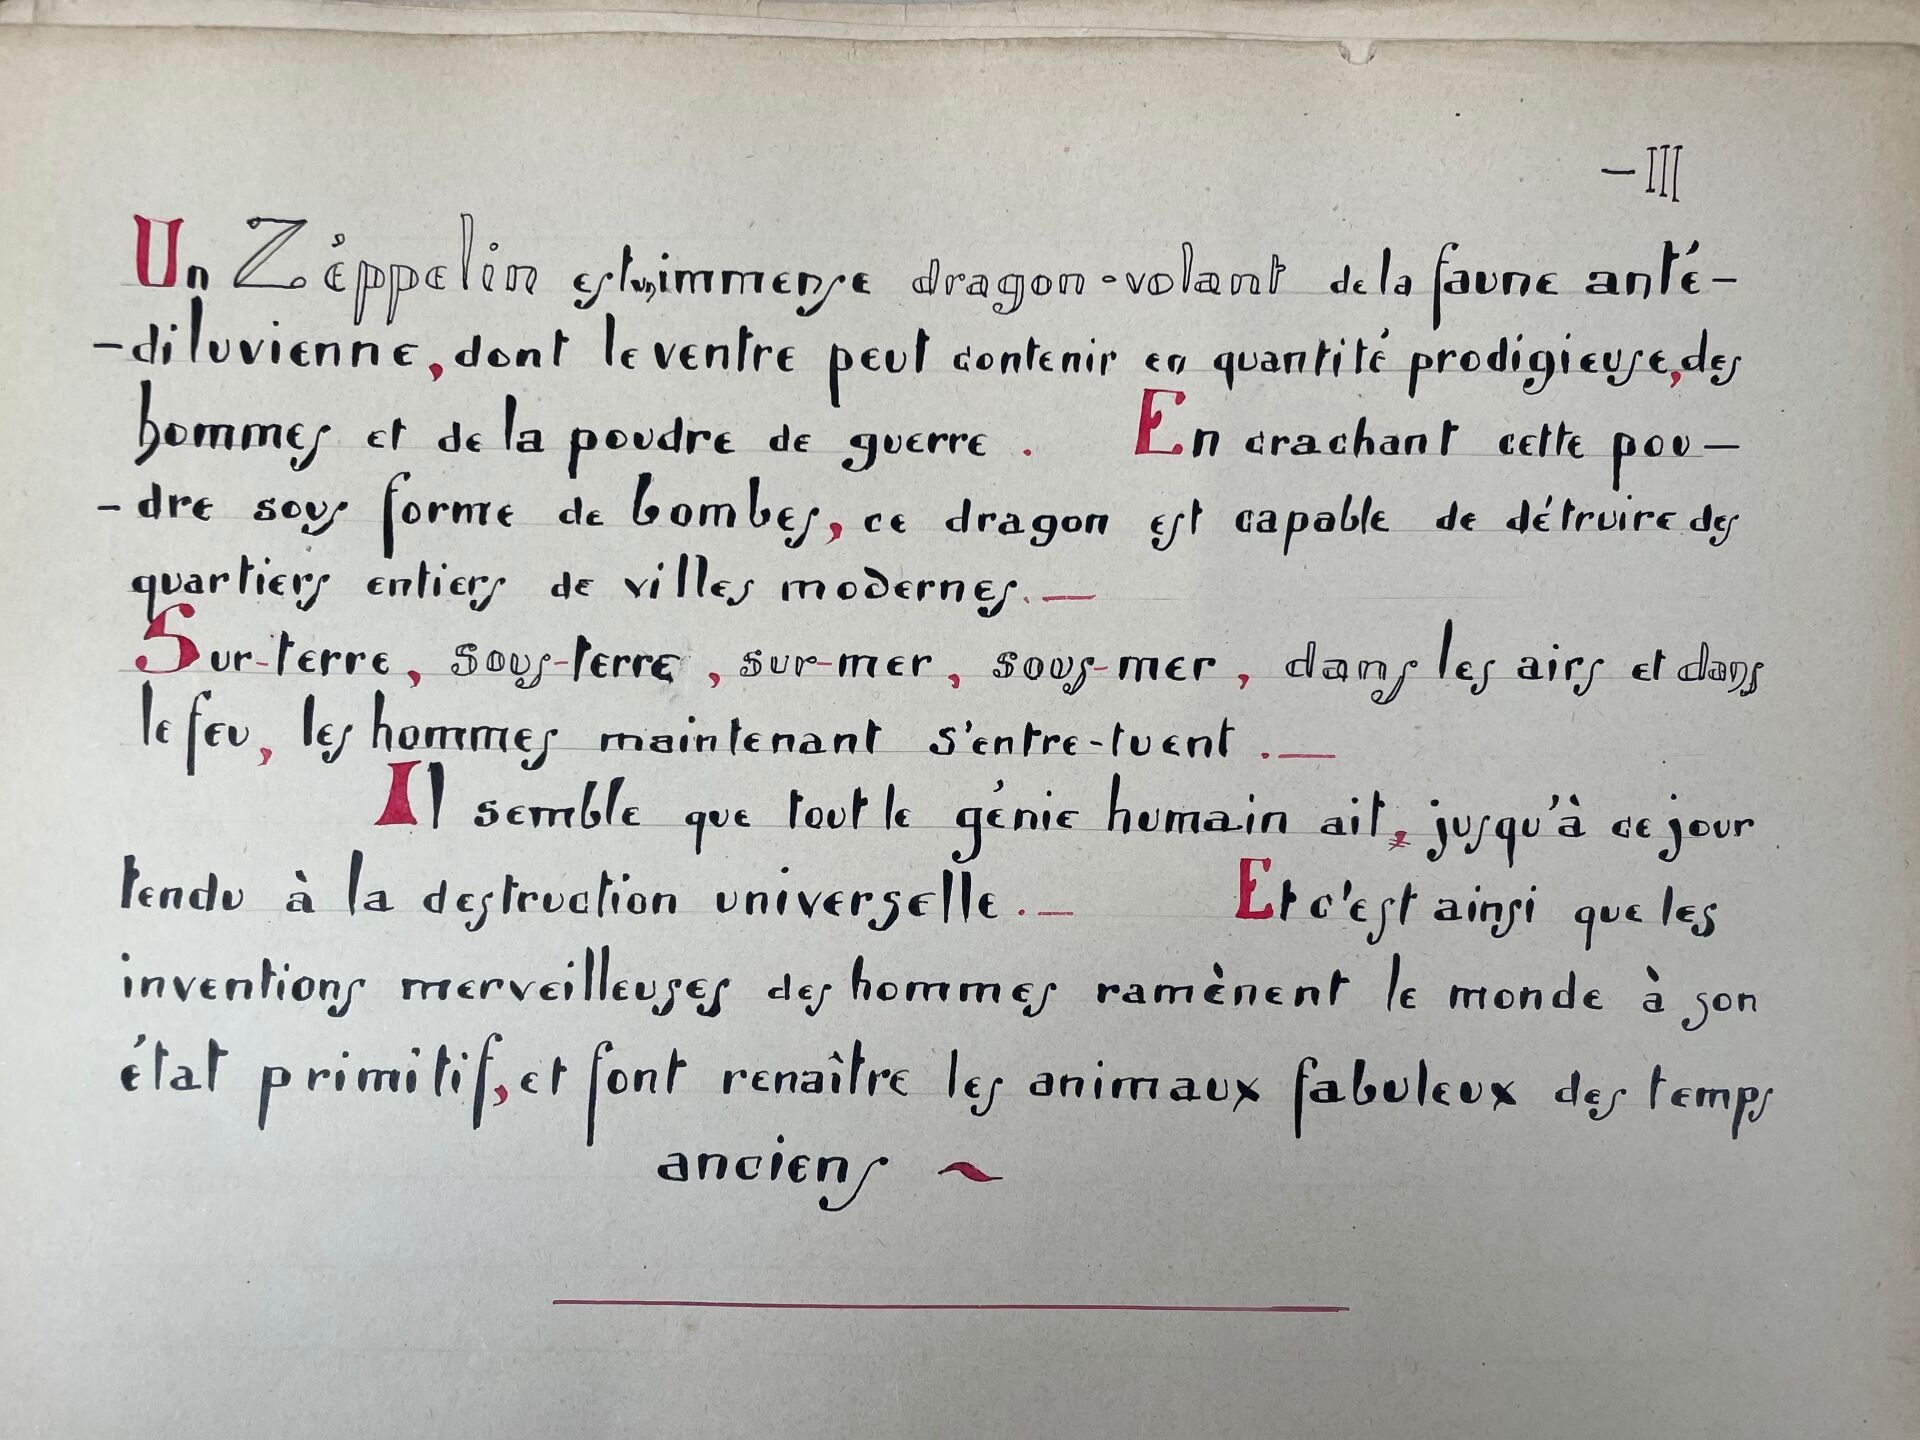 — III
Un Zéppelin est un immense dragon-volant de la faune anté-
-diluvienne, dont le ventre peut contenir en quantité prodigieuse, des
hommes et de la poudre de guerre. En crachant cette pou-
-dre sous forme de bombes, ce dragon est capable de détruire des
quartiers entiers de villes modernes. —
Sur-terre, sous-terre, sur-mer, sous-mer, dans les airs et dans
le feu, les hommes maintenant s'entre-tuent. —
Il semble que tout le génie humain ait, jusqu'à ce jour
tendu à la destruction universelle. — Et c'est ainsi que les
inventions merveilleuses des hommes ramènent le monde à son
état primitif, et font renaître les animaux fabuleux des temps
anciens ~